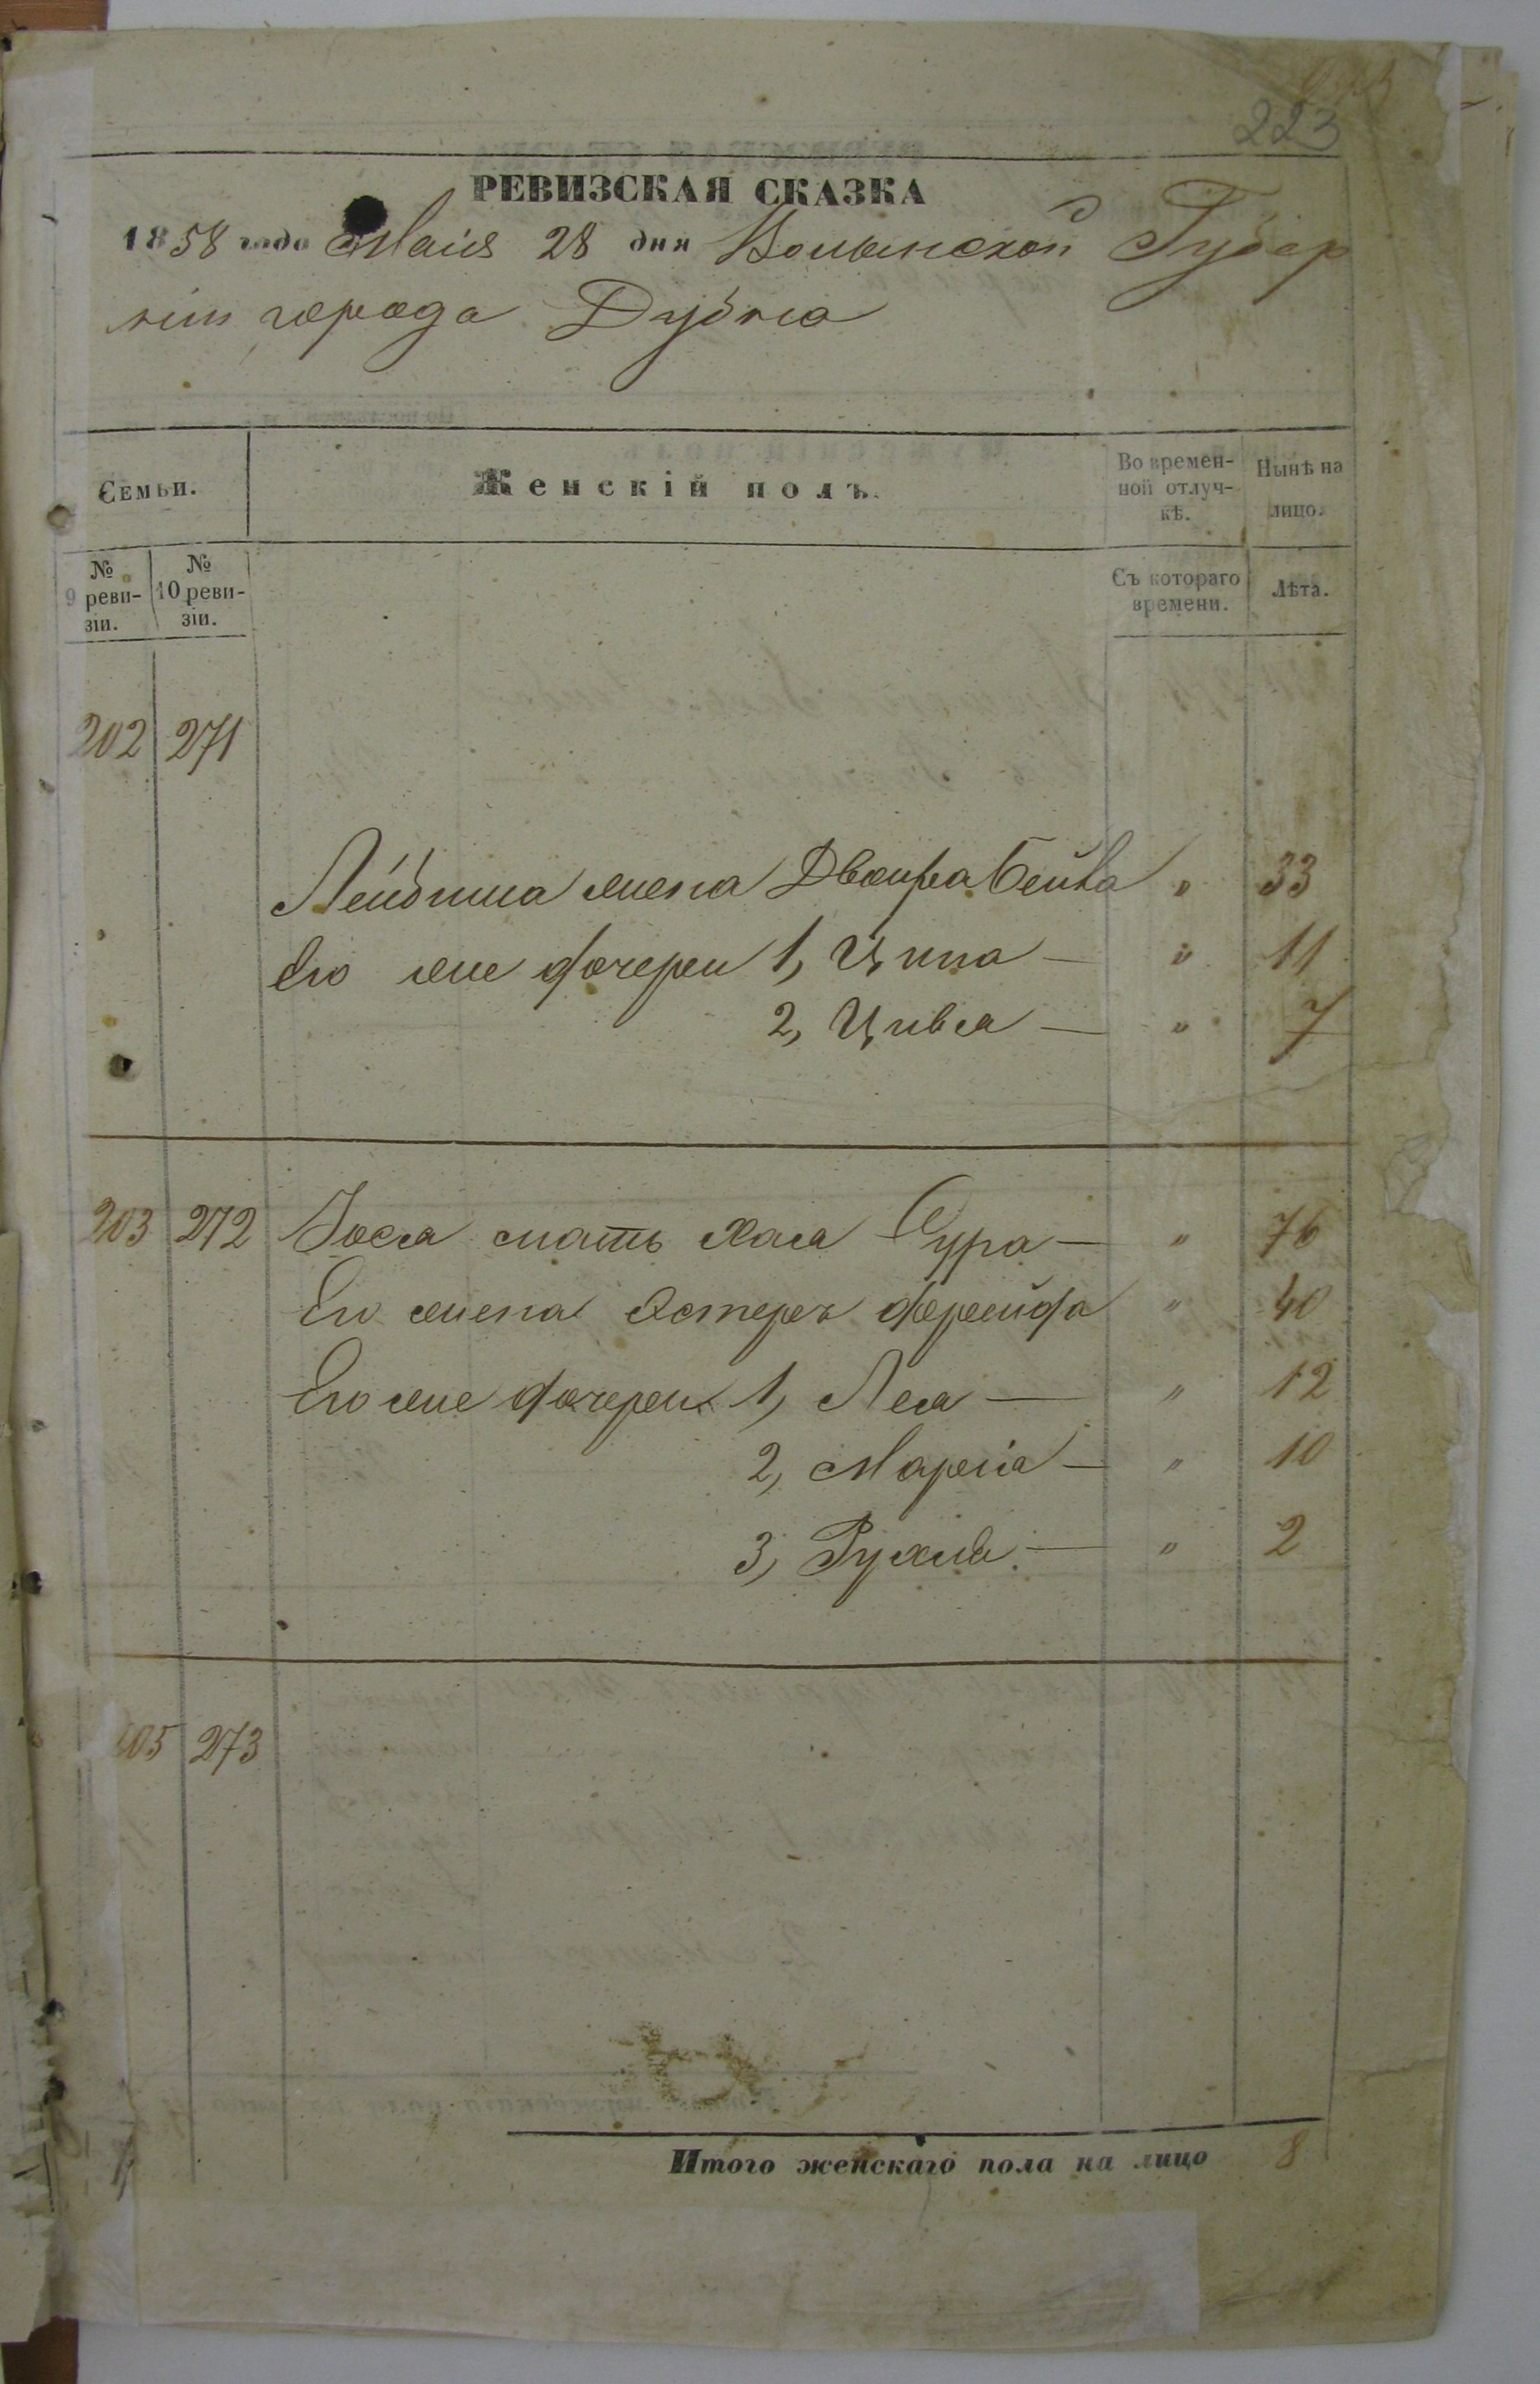 223
РЕВИЗСКАЯ СКАЗКА
1858 года Маія 28 дня Волынской Губер
ніи города Дубна
Семьи.
Женскій полъ.
Во времен-
ной отлуч-
кѣ.
Нынѣ на
лицо.
№
9 реви-
зіи.
№
10 реви-
зіи.
Съ котораго
времени.
Лѣта.
202 271
Лейбиша жена Двойра Бейла " 33
Его же дочери 1, Ципа — " 11
2, Цивья — " 7
203 272 Іося мать Хая Сура — " 76
Его жена Эстеръ Фрейда " 40
Его же дочери 1, Лея — " 12
2, Маріея — " 10
3, Рухля — " 2
05 273
Итого женскаго пола на лицо 8